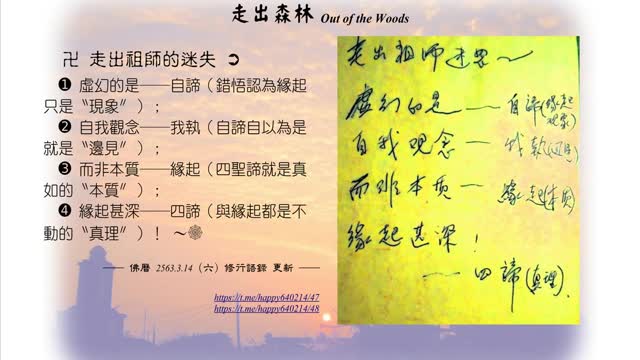 走出森林 Out of the Woods
卍 走出祖師的迷失 ➲
❶ 虛幻的是──自諦（錯悟認為緣起
只是〝現象〞）；
❷ 自我觀念──我執（自諦自以為是
就是〝邊見〞）；
❸ 而非本質──緣起（四聖諦就是真
如的〝本質〞）；
❹ 緣起甚深──四諦（與緣起都是不
動的〝真理〞）！ ～❁
── 佛曆 2563.3.14（六）修行語錄 更新 ──
https://t.me/happy640214/47
https://t.me/happy640214/48
走出祖师迷思～
虛幻的是 — 自諦(緣起
現象)
自我观念 — 我執
而非本质 — 緣起(本质)
緣起甚深！
— 四諦(真理).